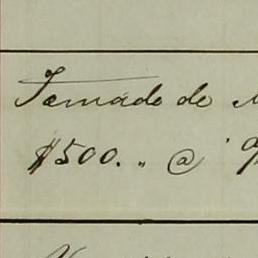 Tomado de
$500. " @